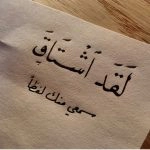 لَقَد اشْتَاقَ
سمعي منك لفظاً